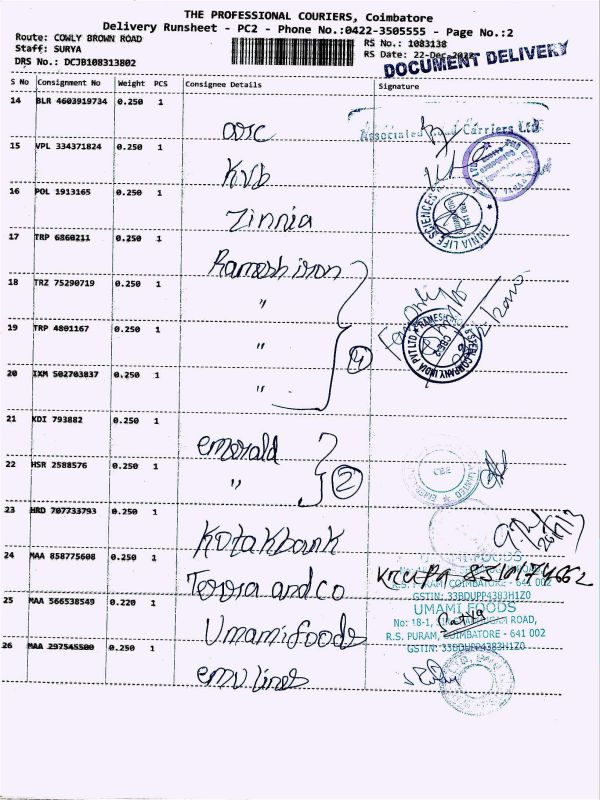 THE PROFESSIONAL COURIERS, Coimbatore
Delivery Runsheet - PC2 - Phone No.:0422-3505555 - Page No.:2
Route: COWLY BROWN ROAD
RS No.: 1083138
Staff: SURYA
RS Date: 22-Dec-
DRS No.: DCJB108313802
DOCUMENT DELIVERY
S No Consignment No Weight PCS Consignee Details Signature
14 BLR 4603919734 0.250 1
Associated Road Carriers Ltd
15 VPL 334371824 0.250 1 Kvb
16 POL 1913165 0.250 1 Zinnia
ZINNIA LIFE SCIENCES
17 TRP 6860211 0.250 1 Ramesh iron
18 TRZ 75290719 0.250 1 "
19 TRP 4801167 0.250 1 "
4
20 IXM 502703837 0.250 1 "
21 KDI 793882 0.250 1 emerald
22 HSR 2588576 0.250 1 "
2
23 HRD 707733793 0.250 1 Kotak bank
24 MAA 858775608 0.250 1 and co
UMAMI FOODS
R.S. PURAM, COIMBATORE - 641 002
GSTIN: 33BDUPP4383H1Z0
25 MAA 566538549 0.220 1 Umami foods
UMAMI FOODS
No: 18-1, ROAD,
R.S. PURAM, COIMBATORE - 641 002
GSTIN: 33BDUPP4383H1Z0
26 MAA 297545500 0.250 1 lines